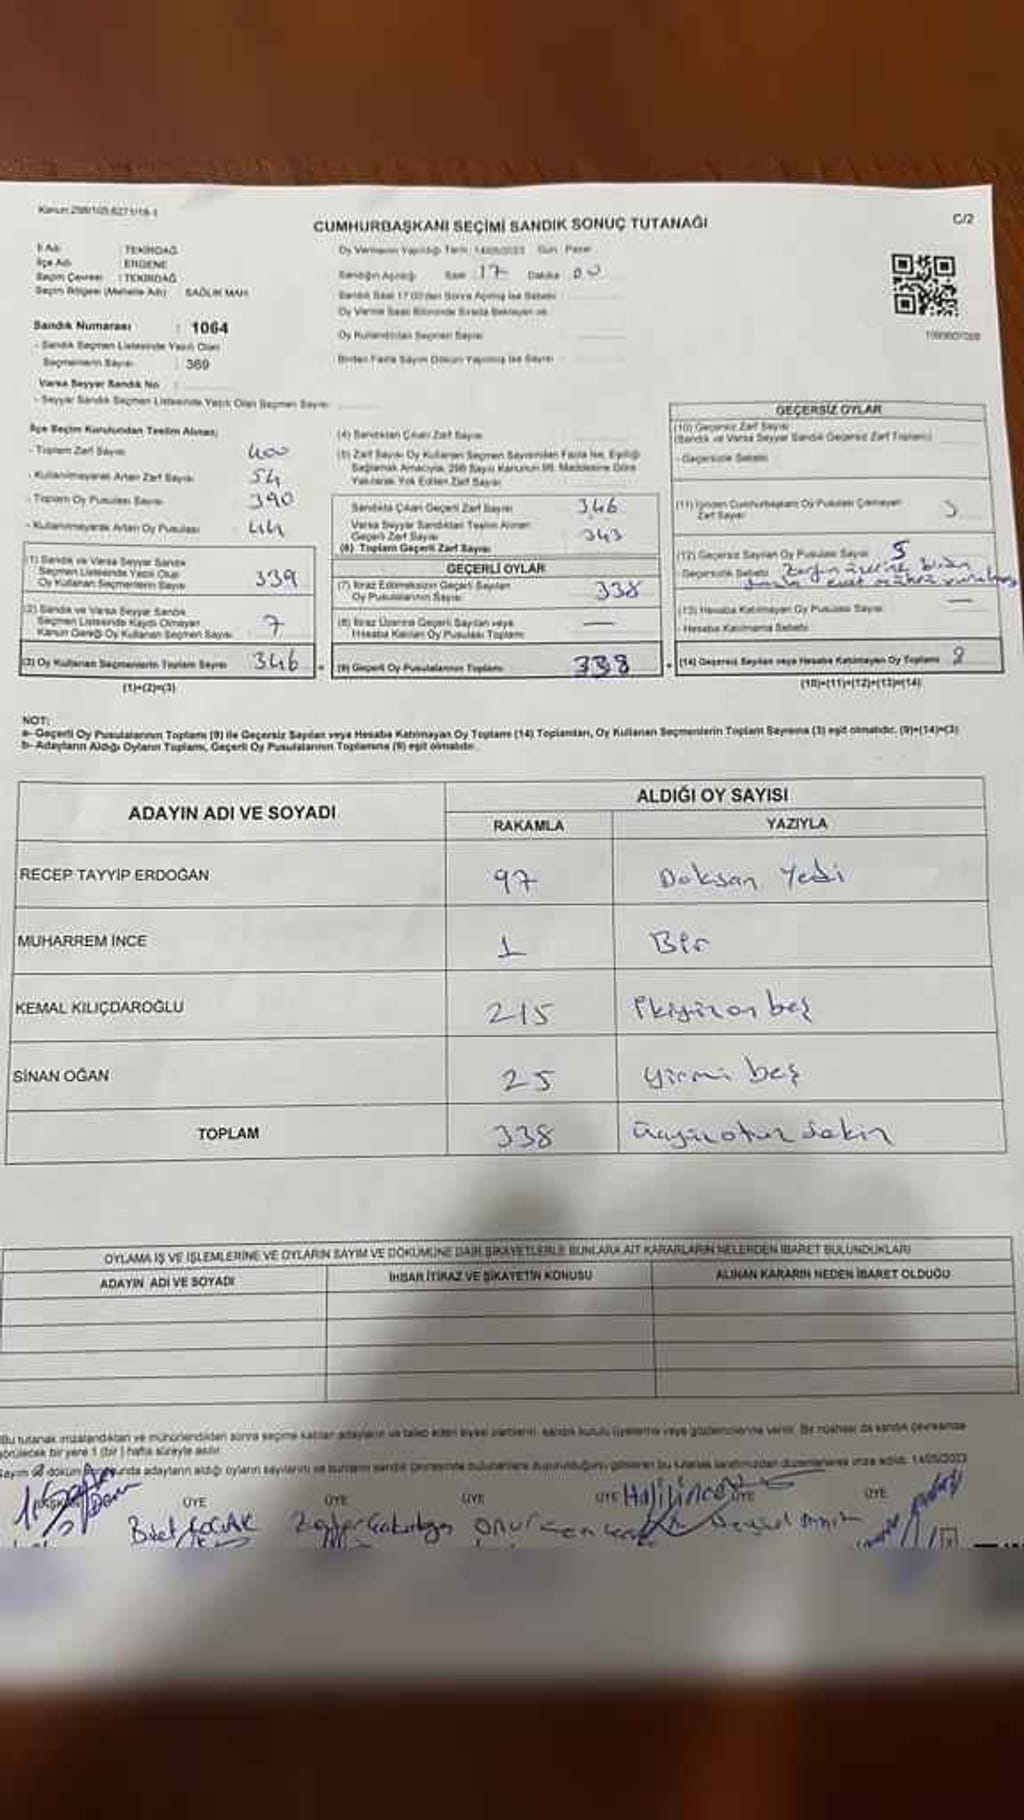 CUMHURBAŞKANI SEÇİMİ SANDIK SONUÇ TUTANAĞI
C/2
İl Adı : TEKİRDAĞ
İlçe Adı : ERGENE
Seçim Çevresi : TEKİRDAĞ
Seçim Bölgesi (Mahalle Adı) SAĞLIK MAH
Oy Vermenin Yapıldığı Tarih 14/05/2023 Gün Pazar
Sandığın Açıldığı Saat 17 Dakika 00
Sandık Saat 17.00'den Sonra Açılmış İse Sebebi
Oy Verme Saati Bitiminde Sırada Bekleyen ve
Oy Kullandırılan Seçmen Sayısı
Birden Fazla Sayım Döküm Yapılmış İse Sayısı
Sandık Numarası : 1064
- Sandık Seçmen Listesinde Yazılı Olan
Seçmenlerin Sayısı : 369
Varsa Seyyar Sandık No :
- Seyyar Sandık Seçmen Listesinde Yazılı Olan Seçmen Sayısı
İlçe Seçim Kurulundan Teslim Alınan;
- Toplam Zarf Sayısı 400
- Kullanılmayarak Artan Zarf Sayısı 54
- Toplam Oy Pusulası Sayısı 390
- Kullanılmayarak Artan Oy Pusulası 44
(1) Sandık ve Varsa Seyyar Sandık
Seçmen Listesinde Yazılı Olup
Oy Kullanan Seçmenlerin Sayısı 339
(2) Sandık ve Varsa Seyyar Sandık
Seçmen Listesinde Kaydı Olmayan
Kanun Gereği Oy Kullanan Seçmen Sayısı 7
(3) Oy Kullanan Seçmenlerin Toplam Sayısı 346
(1)+(2)=(3)
(4) Sandıktan Çıkan Zarf Sayısı
(5) Zarf Sayısı Oy Kullanan Seçmen Sayısından Fazla İse, Eşitliği
Sağlamak Amacıyla, 298 Sayılı Kanunun 98. Maddesine Göre
Yakılarak Yok Edilen Zarf Sayısı
Sandıkta Çıkan Geçerli Zarf Sayısı 346
Varsa Seyyar Sandıktan Teslim Alınan
Geçerli Zarf Sayısı 343
(6) Toplam Geçerli Zarf Sayısı
GEÇERLİ OYLAR
(7) İtiraz Edilmeksizin Geçerli Sayılan
Oy Pusulalarının Sayısı 338
(8) İtiraz Üzerine Geçerli Sayılan veya
Hesaba Katılan Oy Pusulası Toplamı —
(9) Geçerli Oy Pusulalarının Toplamı 338
GEÇERSİZ OYLAR
(10) Geçersiz Zarf Sayısı
(Sandık ve Varsa Seyyar Sandık Geçersiz Zarf Toplamı)
- Geçersizlik Sebebi
(11) İçinden Cumhurbaşkanı Oy Pusulası Çıkmayan
Zarf Sayısı 3
(12) Geçersiz Sayılan Oy Pusulası Sayısı 5
- Geçersizlik Sebebi Zarfın üzerine birden
evet mührü
(13) Hesaba Katılmayan Oy Pusulası Sayısı —
- Hesaba Katılmama Sebebi
(14) Geçersiz Sayılan veya Hesaba Katılmayan Oy Toplamı 8
(10)+(11)+(12)+(13)=(14)
NOT:
a- Geçerli Oy Pusulalarının Toplamı (9) ile Geçersiz Sayılan veya Hesaba Katılmayan Oy Toplamı (14) Toplamları, Oy Kullanan Seçmenlerin Toplam Sayısına (3) eşit olmalıdır. (9)+(14)=(3)
b- Adayların Aldığı Oyların Toplamı, Geçerli Oy Pusulalarının Toplamına (9) eşit olmalıdır.
ADAYIN ADI VE SOYADI
ALDIĞI OY SAYISI
RAKAMLA YAZIYLA
RECEP TAYYİP ERDOĞAN 97 Doksan Yedi
MUHARREM İNCE 1 Bir
KEMAL KILIÇDAROĞLU 215 İkiyüzon beş
SİNAN OĞAN 25 yirmi beş
TOPLAM 338 üçyüzotuz sekiz
OYLAMA İŞ VE İŞLEMLERİNE VE OYLARIN SAYIM VE DÖKÜMÜNE DAİR ŞİKAYETLERLE BUNLARA AİT KARARLARIN NELERDEN İBARET BULUNDUKLARI
ADAYIN ADI VE SOYADI İHBAR İTİRAZ VE ŞİKAYETİN KONUSU ALINAN KARARIN NEDEN İBARET OLDUĞU
Bu tutanak imzalandıktan ve mühürlendikten sonra seçime katılan adayların ve talep eden siyasi partilerin sandık kurulu üyelerine veya gözlemcilerine verilir. Bir nüshası da sandık çevresinde
görülecek bir yere 1 (bir) hafta süreyle asılır.
Sayım döküm adayların aldığı oyların sayılarını ve bunların sandık çevresinde bulunanlara duyurulduğunu gösteren bu tutanak tarafımızdan düzenlenerek imza edildi. 14/05/2023
ÜYE ÜYE ÜYE ÜYE ÜYE ÜYE
Halil İnce